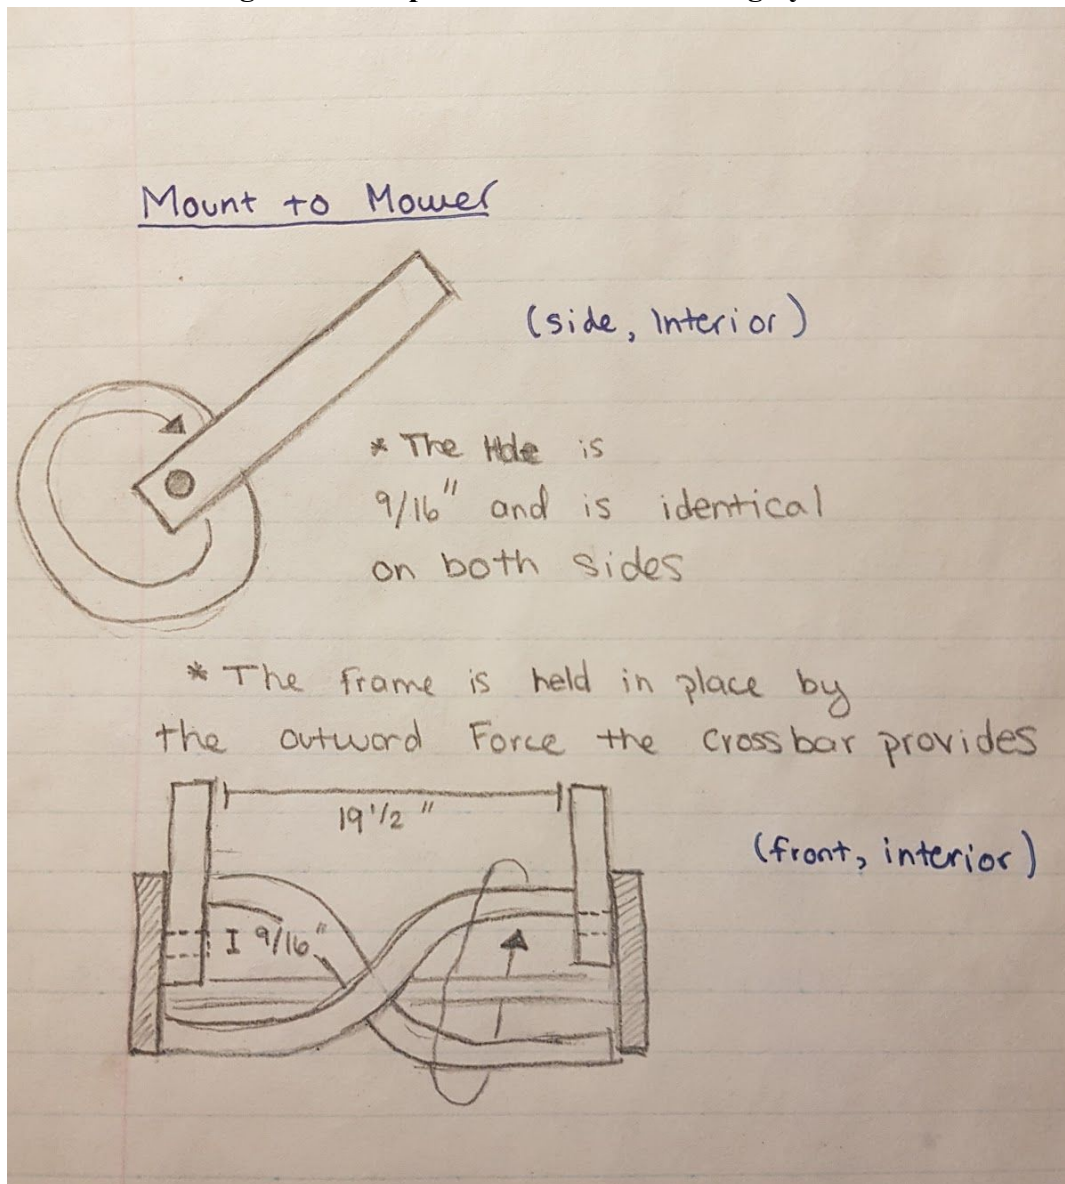 Mount to Mower
(side, Interior)
* The Hole is
9/16" and is identical
on both sides
* The frame is held in place by
the outword Force the crossbar provides
19 1/2 "
(front, interior)
I 9/16"